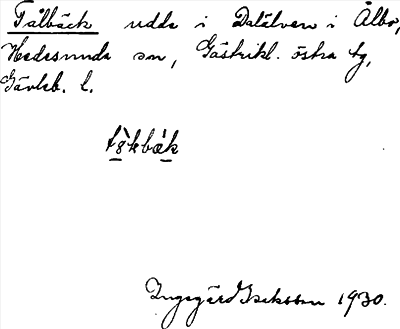 Tålbäck udde i Dalälven i Ålbo,
Hedesunda sn, Gästrikl. östra tg,
Gävleb. l.
Ingegärd Isaksson 1930.